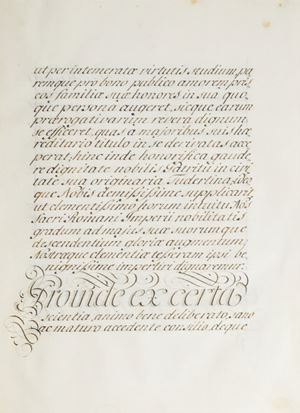 ut per intemeratæ virtutis studium, pa
remque pro bono publico amorem pris
cos familiæ suæ honores in sua quo,
que persona augeret, sicque earum
prærogativarum reverà dignum
se efficeret, quas a majoribus suis hæ
reditario titulo in se derivatas acce
perat, hinc inde honorifica gaude,
re dignitate nobilis Patritii in civi
tate sua originaria Tudertina, ideo
que Nobis demississime supplicavit,
ut clementissimo horum intuitu Nos
Sacri Romani Imperii nobilitatis
gradum ad majus suæ suorumque
descendentium gloriæ augmentum,
Nostræque clementiæ tesseram ipsi be,
nignissime impertiri dignaremur.
Proinde ex certa
scientia, animo bene deliberato, sano
ac maturo accedente consilio, deque